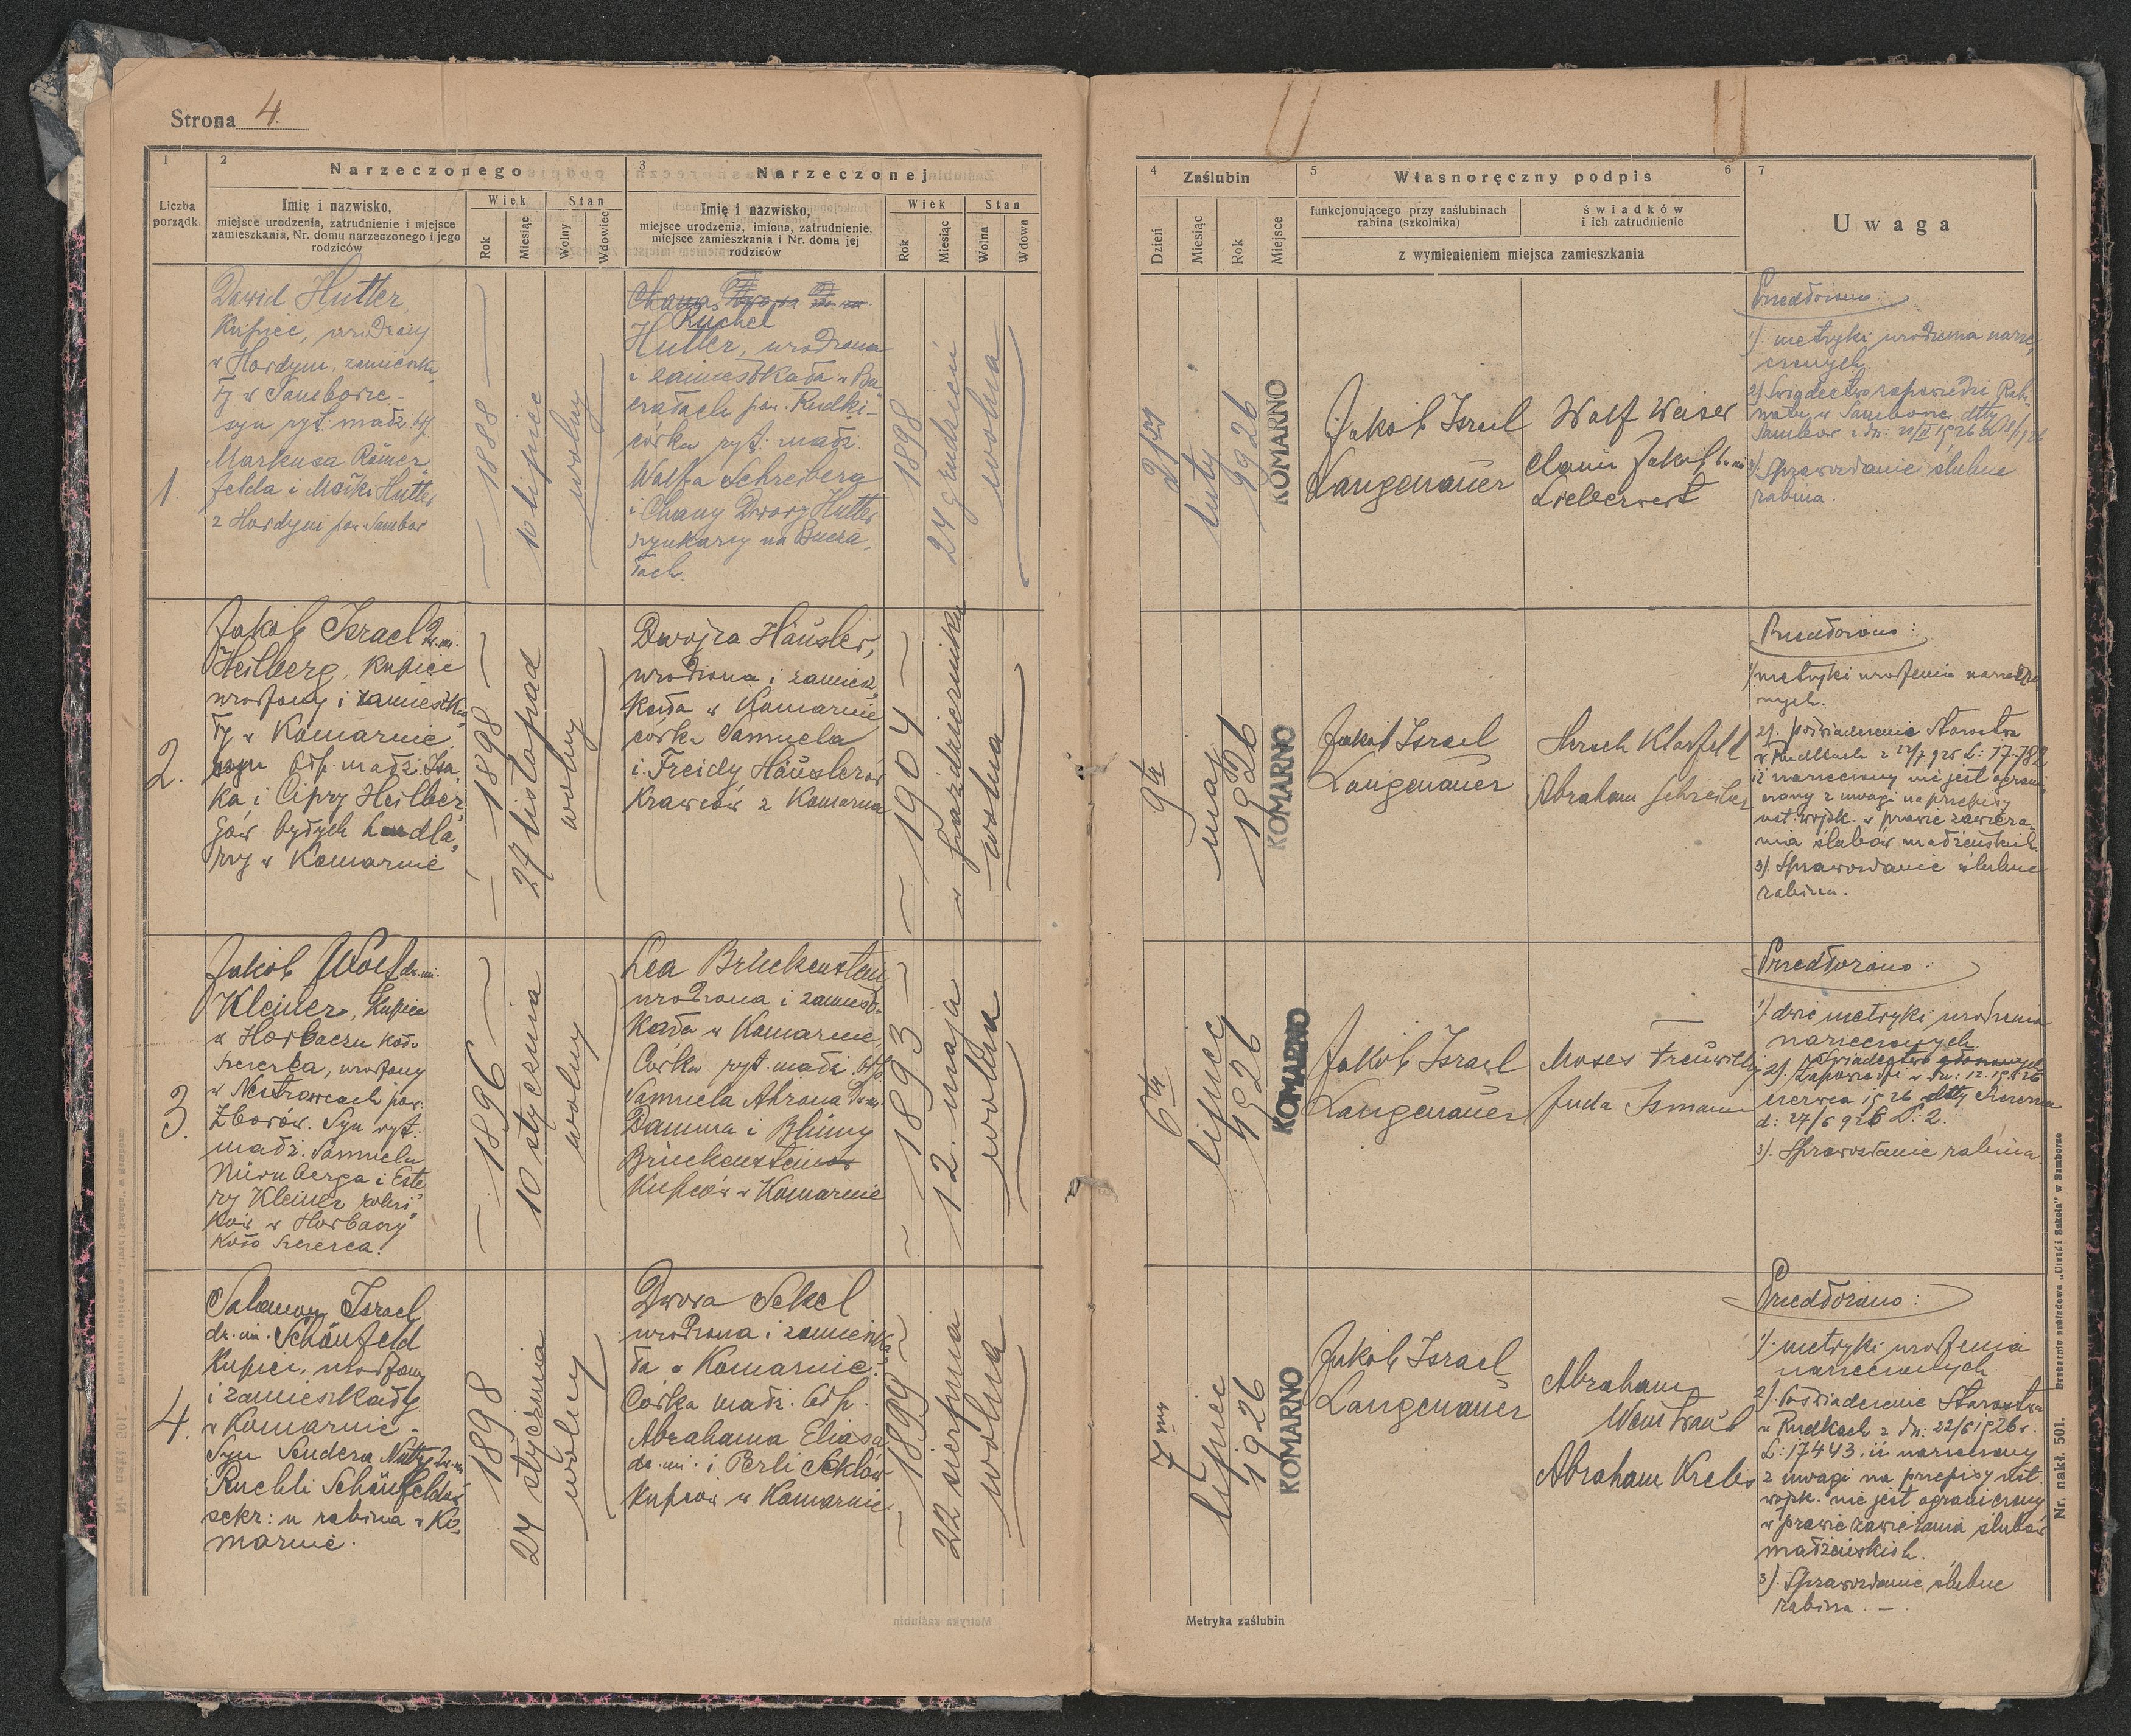 Strona 4.
1
2
Narzeczonego
3
Narzeczonej
Liczba
porządk.
Imię i nazwisko,
miejsce urodzenia, zatrudnienie i miejsce
zamieszkania, Nr. domu narzeczonego i jego
rodziców
Wiek
Stan
Rok
Miesiąc
Wolny
Wdowiec
Imię i nazwisko,
miejsce urodzenia, imiona, zatrudnienie,
miejsce zamieszkania i Nr. domu jej
rodziców
Wiek
Stan
Rok
Miesiąc
Wolna
Wdowa
1.
Dawid Hutter
Kupiec, urodzony
w Hordyni, zamieszka
ły w Samborze
syn ryt. małż.
Markusa Römer
felda i Małki Hutter
z Hordyni pow Sambor
1888
10 lipiec
wolny
Ruchel
Hutter, urodzona
i zamieszkała w Bu
czałach pow. Rudki
córka ryt. małż.
Wolfa Schreibera
i Chany Dwory Hutter
szynkarzy na Bucza
łach.
1898
24 grudzień
wolna
2.
Jakób Israel 2 im.
Heilberg, Kupiec
urodzony i zamieszka
ły w Komarnie
syn małż. Isa
ka i Cipry Heilber
gów byłych handla
rzy w Komarnie
1898
27 listopad
wolny
Dwojra Häusler,
urodzona i zamiesz
kała w Komarnie
córka Samuela
i Freidy Häuslerów
Krawców z Komarna
1904
w październiku
wolna
3.
Jakób Wolf dw. im.
Kleiner, Kupiec
w Horbaczu koło
Szczerca, urodzony
w Nestrowcach pow.
Zborów. Syn ryt.
małż. Samuela
Nürnberga i Este
ry Kleiner rolni
ków w Horbaczy
koło Szczerca.
1896
10 stycznia
wolny
Lea Brückenstein
urodzona i zamiesz
kała w Komarnie,
Córka ryt. małż.
Samuela Ahrona
Damma i Blimy
Brückenstein
Kupców w Komarnie
1893
12. maja
wolna
4.
Salamon Israel
dw. im. Schönfeld
Kupiec, urodzony
i zamieszkały
w Komarnie
Syn Sendera
i Ruchli Schönfeldów
sekr: u rabina w Ko
marnie.
1898
24 stycznia
wolny
Dwora Sekel
urodzona i zamieszka
ła w Komarnie.
Córka małż.
Abrahama Eliasa
dw. im. i Perli Seklów
Kupców w Komarnie
1899
22 sierpnia
wolna
4
Zaślubin
5
Własnoręczny podpis
6
7
Dzień
Miesiąc
Rok
Miejsce
funkcjonującego przy zaślubinach
rabina (szkolnika)
świadków
i ich zatrudnienie
z wymienieniem miejsca zamieszkania
Uwaga
luty
1926
KOMARNO
Jakob Israel
Langenauer
Wolf Weiser
Chaim Jakob
Lieberwert
Przedłożono:
1). metryki urodzenia narze
czonych.
2) Świadectwo zapowiedzi Rabi
natu w Samborze
3). Sprawozdanie ślubne
rabina.
9go
maj
1926
KOMARNO
Jakob Israel
Langenauer
Hersch Klarfeld
Abraham Schreiber
Przedłożono:
1) metryki urodzenia narzeczo
nych.
2). poświadczenie Starostwa
w Rudkach z 22/7 925 L: 17.782
iż narzeczony nie jest ograni
czony z uwagi na przepisy
ust. wojsk. w prawie zawiera
nia ślubów małżeńskich.
3). Sprawozdanie ślubne
rabina.
6go
lipncy
1926
KOMARNO
Jakob Israel
Langenauer
Moses
Juda Ismann
Przedłożono:
1) dwie metryki urodzenia
narzeczonych
2). Świadectwo
zapowiedzi
czerwca 1926
d: 27/6 926 L: 2.
3). Sprawozdanie rabina.
7my
lipiec
1926
KOMARNO
Jakob Israel
Langenauer
Abraham
Weintraub
Abraham Krebs
Przedłożono:
1). metryki urodzenia
narzeczonych.
2). Poświadczenie Starostwa
w Rudkach z dn: 22/6 1926 r.
L: 17443. iż narzeczony
z uwagi na przepisy ust.
wojsk. nie jest ograniczony
w prawie zawierania ślubów
małżeńskich.
3). Sprawozdanie ślubne
rabina.
Metryka zaślubin
Nr. nakł. 501. Drukarnia nakładowa „Urząd i Szkoła" w Samborze